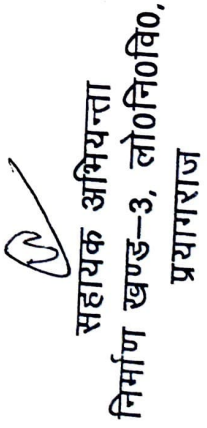 सहायक अभियन्ता
निर्माण खण्ड-3, लो०नि०वि०,
प्रयागराज